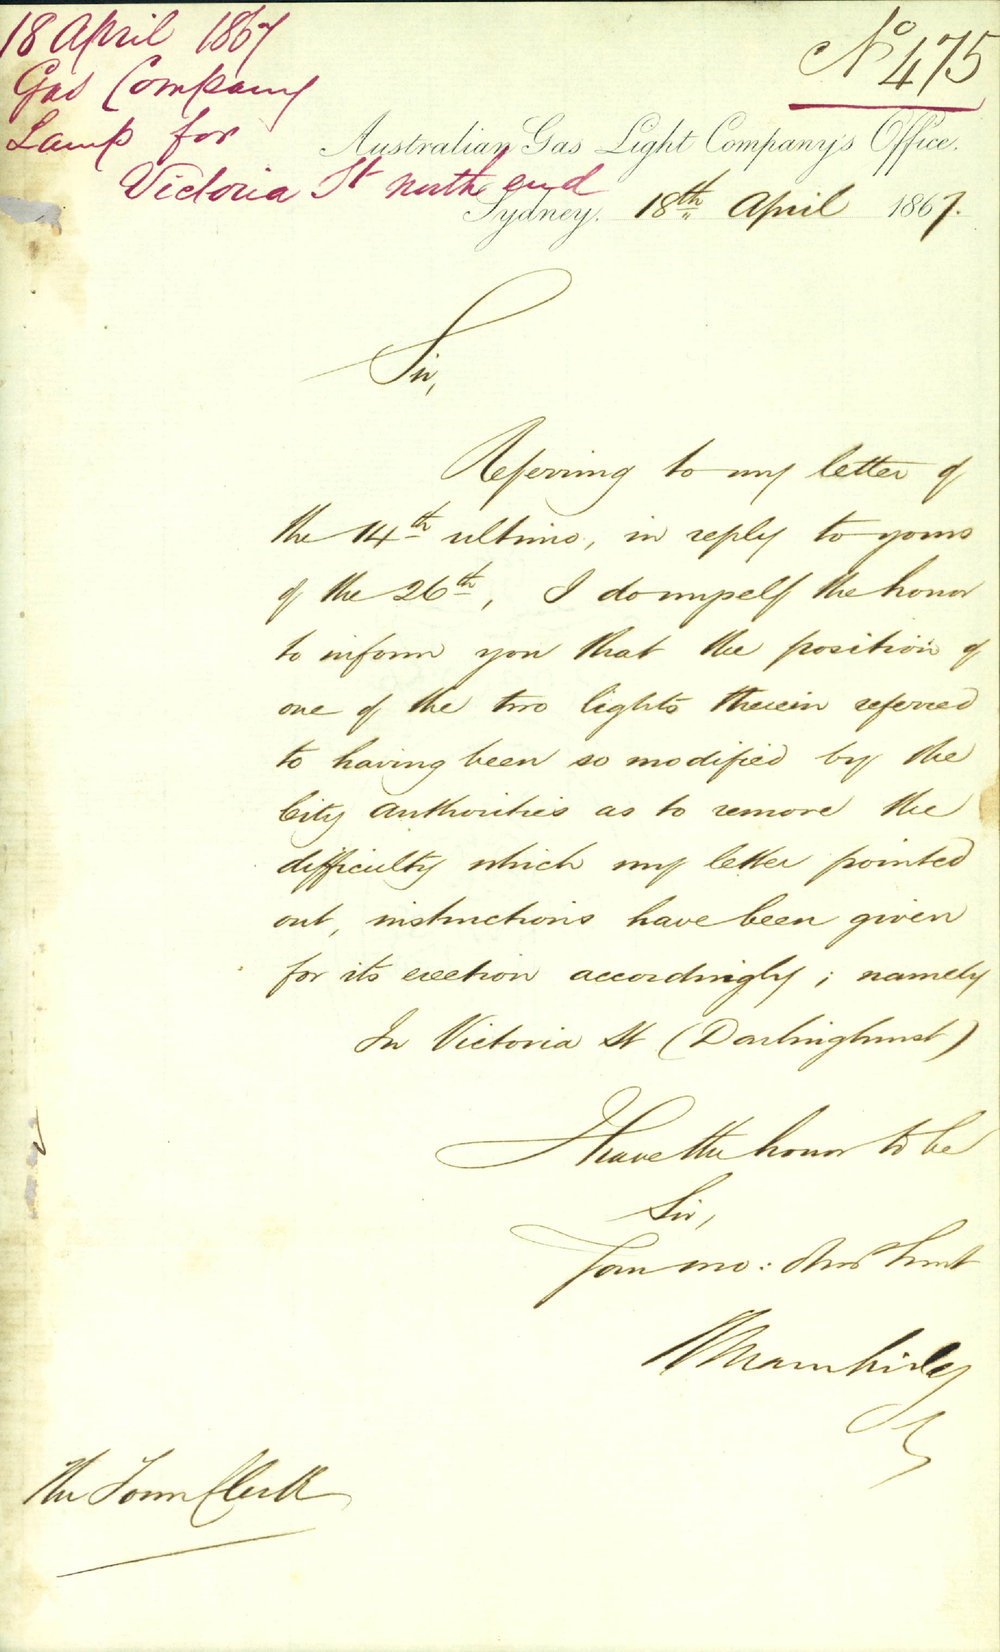 18 April 1867
Gas Company
Lamp for
Victoria St north end
No 475
Australian Gas Light Company's Office.
Sydney. 18th April 1867.
Sir,
Referring to my letter of
the 14th ultimo, in reply to yours
of the 26th, I do myself the honor
to inform you that the position of
one of the two lights therein referred
to having been so modified by the
City Authorities as to remove the
difficulty which my letter pointed
out, instructions have been given
for its erection accordingly; namely
In Victoria St (Darlinghurst)
I have the honor to be
Sir,
Your mo: Obed Servt
The Town Clerk